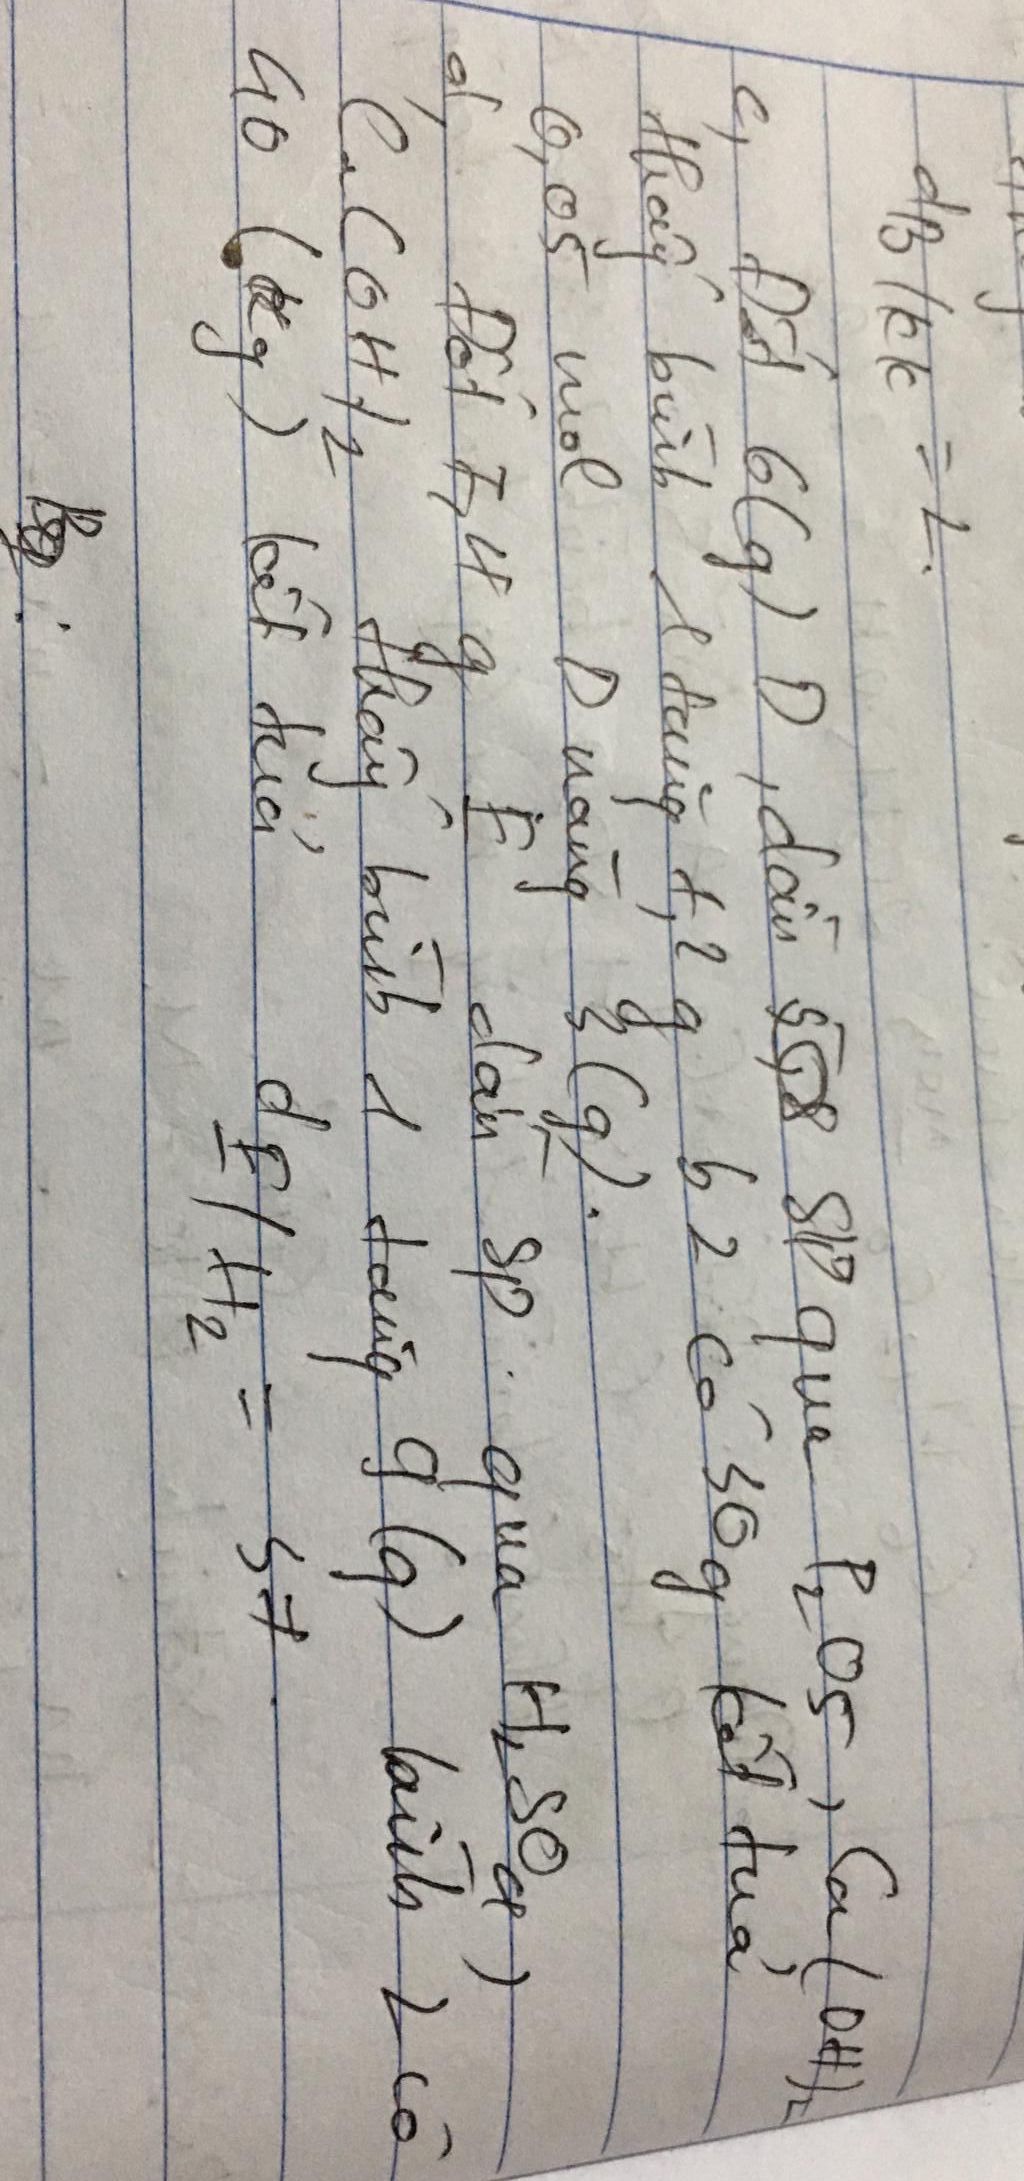 dB/kk = 2.
c, Đốt 6(g) D, dẫn SP qua P2O5, Ca(OH)2
thấy bình 1 tăng 7,2 g b2 có 30g kết tủa
0,05 mol D nặng 3(g).
d, Đốt 7,4 g E dẫn sp. qua H2SO4,
Ca(OH)2 thấy bình 1 tăng 9(g) bình 2 có
40 (g) kết tủa dE/H2 = 37.